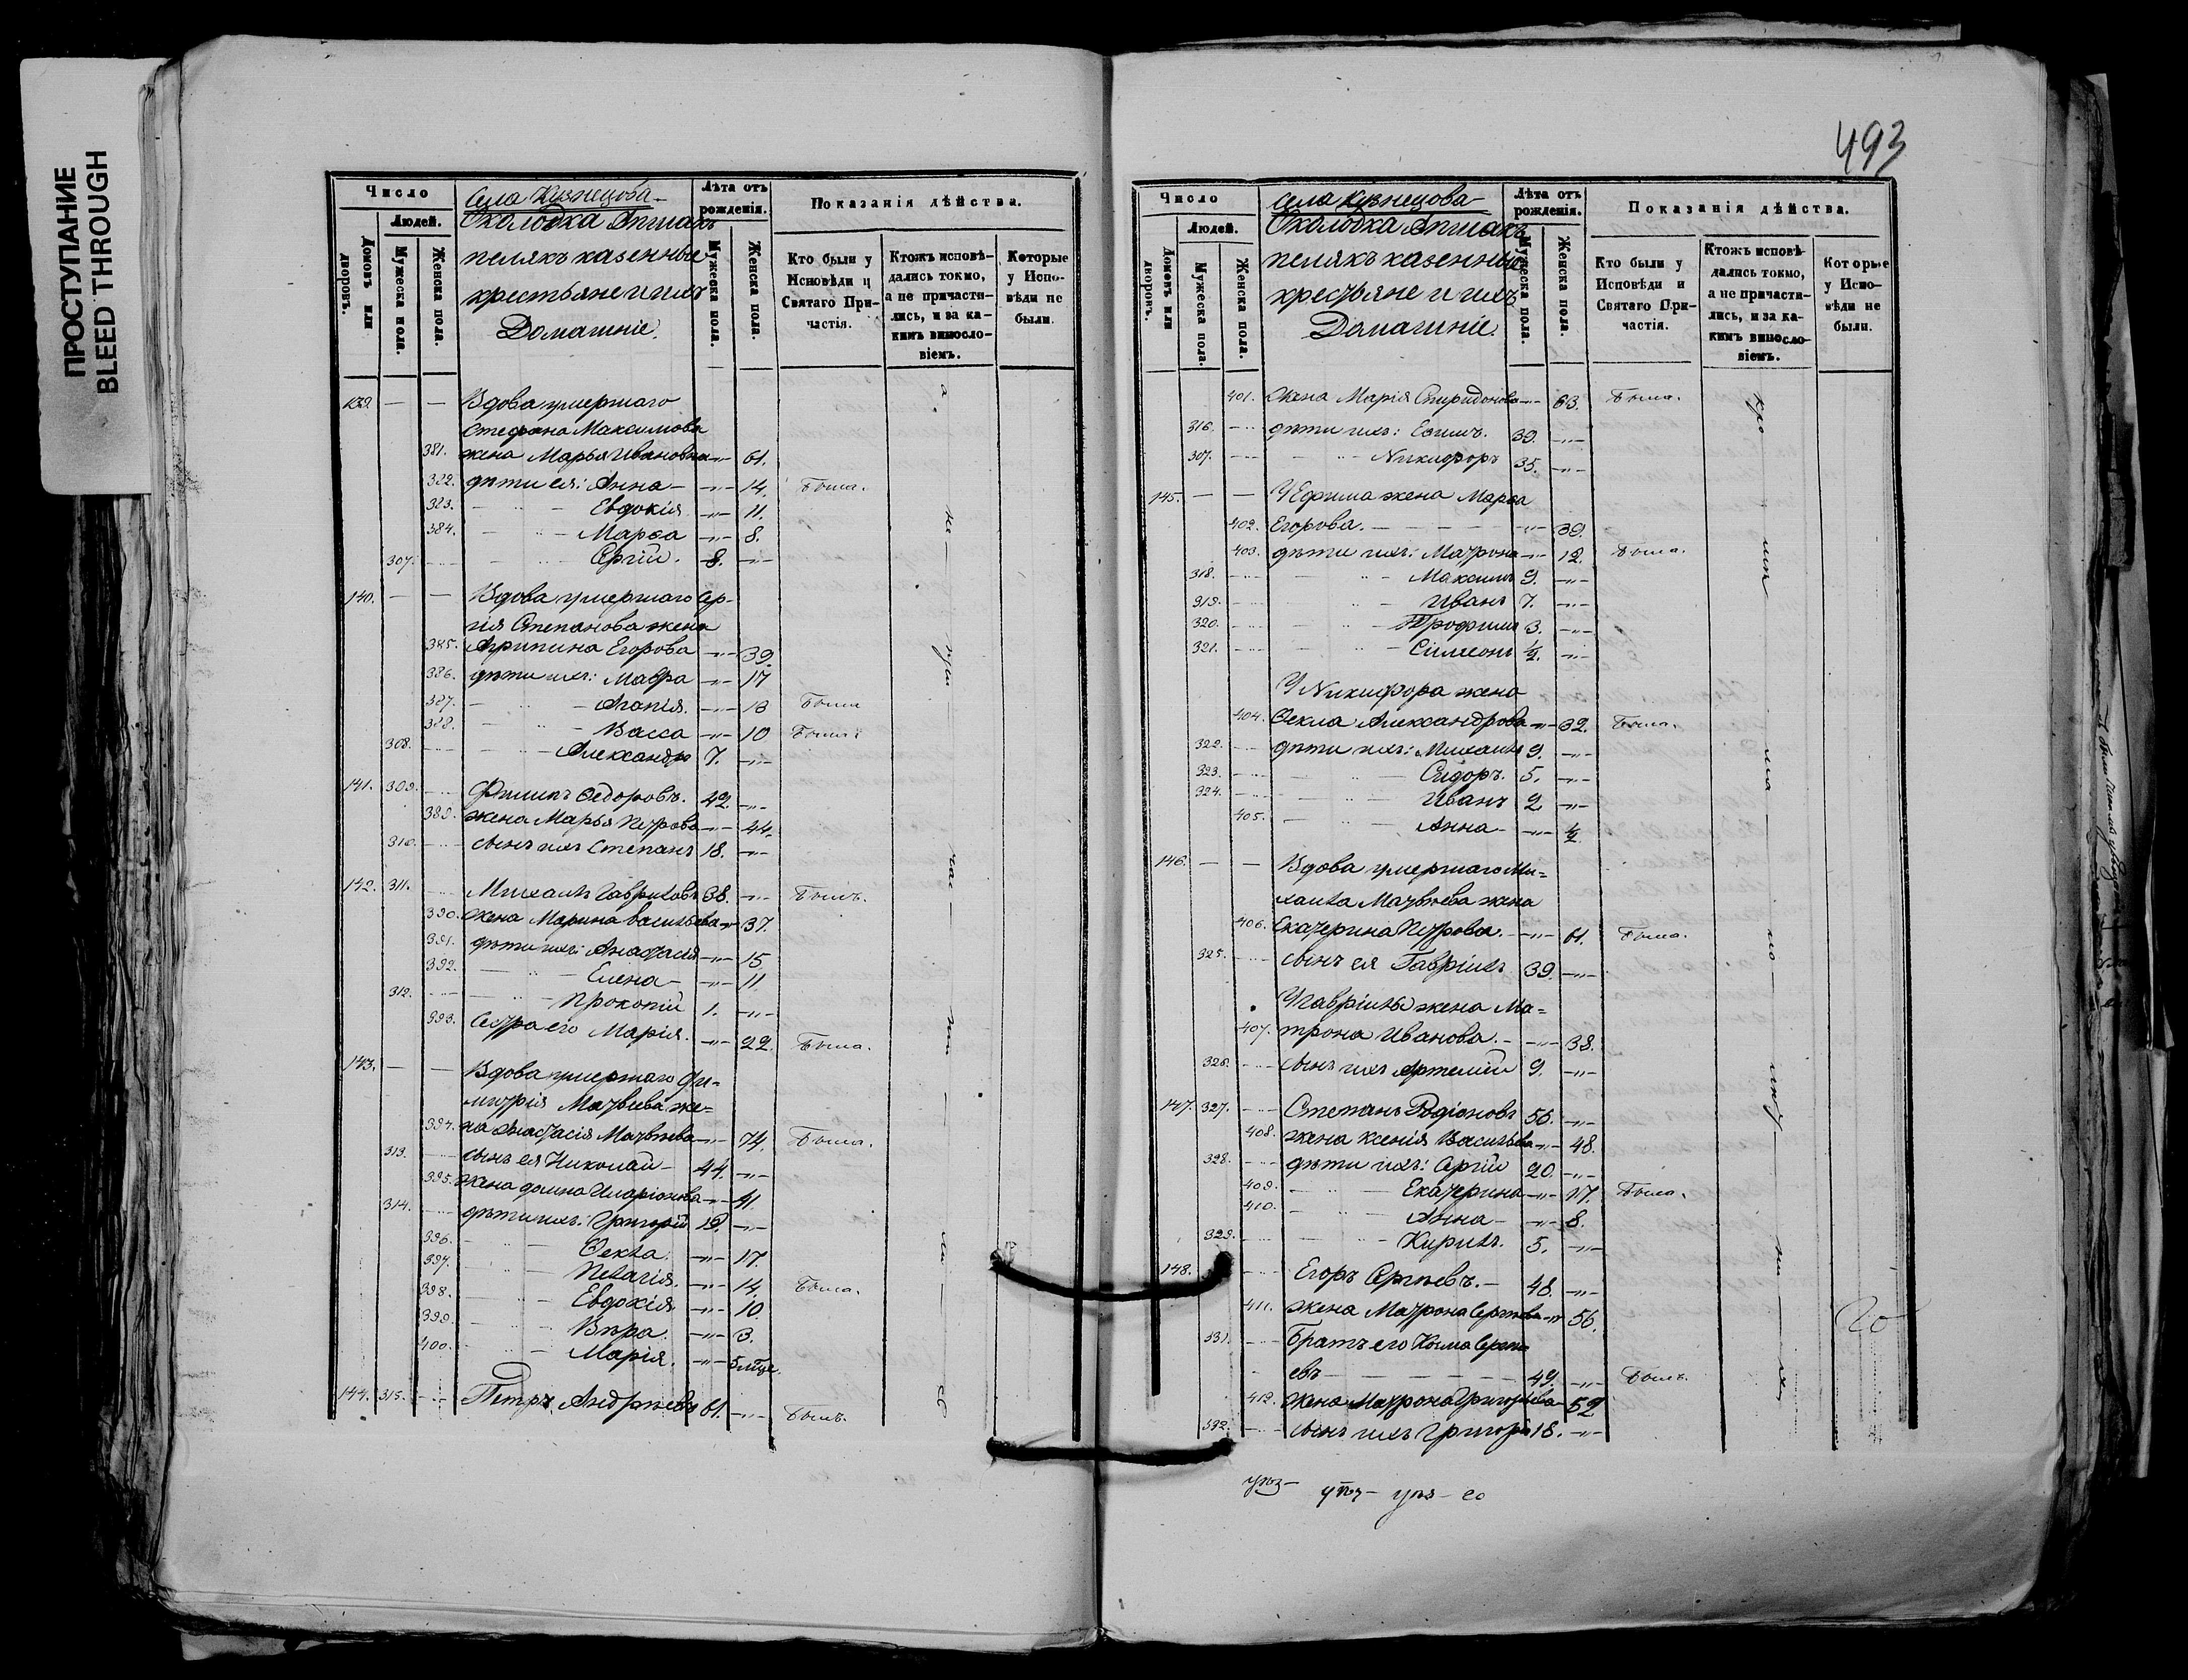 ПРОСТУПАНИЕ
BLEED THROUGH
Число
Людей.
Домовъ или дворовъ.
Мужеска пола.
Женска пола.
Села Кузнецова
Околодка Апшакъ
пелякъ казенные
крестьяне и ихъ
Домашніе.
Лѣта отъ рожденія.
Мужеска пола.
Женска пола.
Показанія дѣйства.
Кто были у Исповѣди и Святаго Причастія.
Ктожъ исповѣдались токмо, а не причастились, и за какимъ винословіемъ.
Которые у Исповѣди не были.
139. — — Вдова умершаго
Стефана Максимова
381. жена Марья Ивановна —"— 61.
382. дѣти ея: Анна — —"— 14. Была.
383. — " — Евдокія —"— 11.
384. — " — Марѳа —"— 8.
307. — " — Сергій. 8. —"—
140. — — Вдова умершаго Сер-
гія Степанова жена
385. Агрипина Егорова —"— 39.
386. дѣти ихъ: Мавра —"— 17
387. — " — Агапія. —"— 13 Была
388. — " — Васса —"— 10 Была
308. — " — Александръ 7. —"—
141. 309. Филипъ Ѳедоровъ. 42. —"—
389. жена Марья Петрова —"— 44.
310. сынъ ихъ Степанъ 18. —"—
142. 311. Михаилъ Гавриловъ 38. —"— Былъ.
390. жена Марина Васильева —"— 37.
391. дѣти ихъ: Анастасія —"— 15
392. — " — Елена — —"— 11
312. — " — Прокопій 1. —"—
393. Сестра его Марія. —"— 22. Была.
143. — — Вдова умершаго Ди-
митрія Матвѣева же-
394. на Анастасія Матвѣева —"— 74. Была.
313. сынъ ея Николай — 44. —"—
395. жена Домна Иларіонова —"— 41.
314. дѣти ихъ: Григорій 19. —"—
396. — " — Ѳекла. —"— 17.
397. — " — Пелагія. —"— 14.
398. — " — Евдокія —"— 10. Была.
399. — " — Вѣра. —"— 3.
400. — " — Марія. —"— 5 мѣс.
144. 315. Петръ Андреевъ 61. —"— Былъ.
493
Число
Людей.
Домовъ или дворовъ.
Мужеска пола.
Женска пола.
Села Кузнецова
Околодка Апшакъ
пелякъ казенные
крестьяне и ихъ
Домашніе.
Лѣта отъ рожденія.
Мужеска пола.
Женска пола.
Показанія дѣйства.
Кто были у Исповѣди и Святаго Причастія.
Ктожъ исповѣдались токмо, а не причастились, и за какимъ винословіемъ.
Которые у Исповѣди не были.
401. Жена Марія Спиридонова —"— 63. Была.
316. дѣти ихъ: Ефимъ. 39. —"—
307. — " — Никифоръ 35. —"—
145. — — У Ефима жена Марѳа
402. Егорова. —"— 39.
403. дѣти ихъ: Матрона —"— 12. Была.
318. — " — Максимъ 9. —"—
319. — " — Иванъ 7. —"—
320. — " — Трофимъ 3. —"—
321. — " — Симеонъ ½. —"—
У Никифора жена
404. Ѳекла Александрова —"— 32. Была.
322. дѣти ихъ: Михаилъ 9. —"—
323. — " — Сидоръ. 5. —"—
324. — " — Иванъ 2 —"—
405. — " — Анна — —"— ½
146. — — Вдова умершаго Ми-
хаила Матвѣева жена
406. Екатерина Петрова. —"— 61. Была.
325. сынъ ея Гавріилъ 39. —"—
У Гавріила жена Ма-
407. трона Иванова. —"— 38.
326. сынъ ихъ Артемій 9. —"—
147. 327. Степанъ Родіоновъ 56. —"—
408. жена Ксенія Васильева —"— 48.
328. дѣти ихъ: Сергій 20. —"—
409. — " — Екатерина —"— 17. Была.
410. — " — Анна — —"— 8.
329. — " — Кирилъ. 5. —"—
148. Егоръ Сергѣевъ. — 48. —"—
411. жена Матрона Сергѣева —"— 56.
331. Братъ его Козма Сергѣ
евъ — 49. —"— Былъ.
412. жена Матрона Григорьева — 52
332. сынъ ихъ Григорій 18. —"—